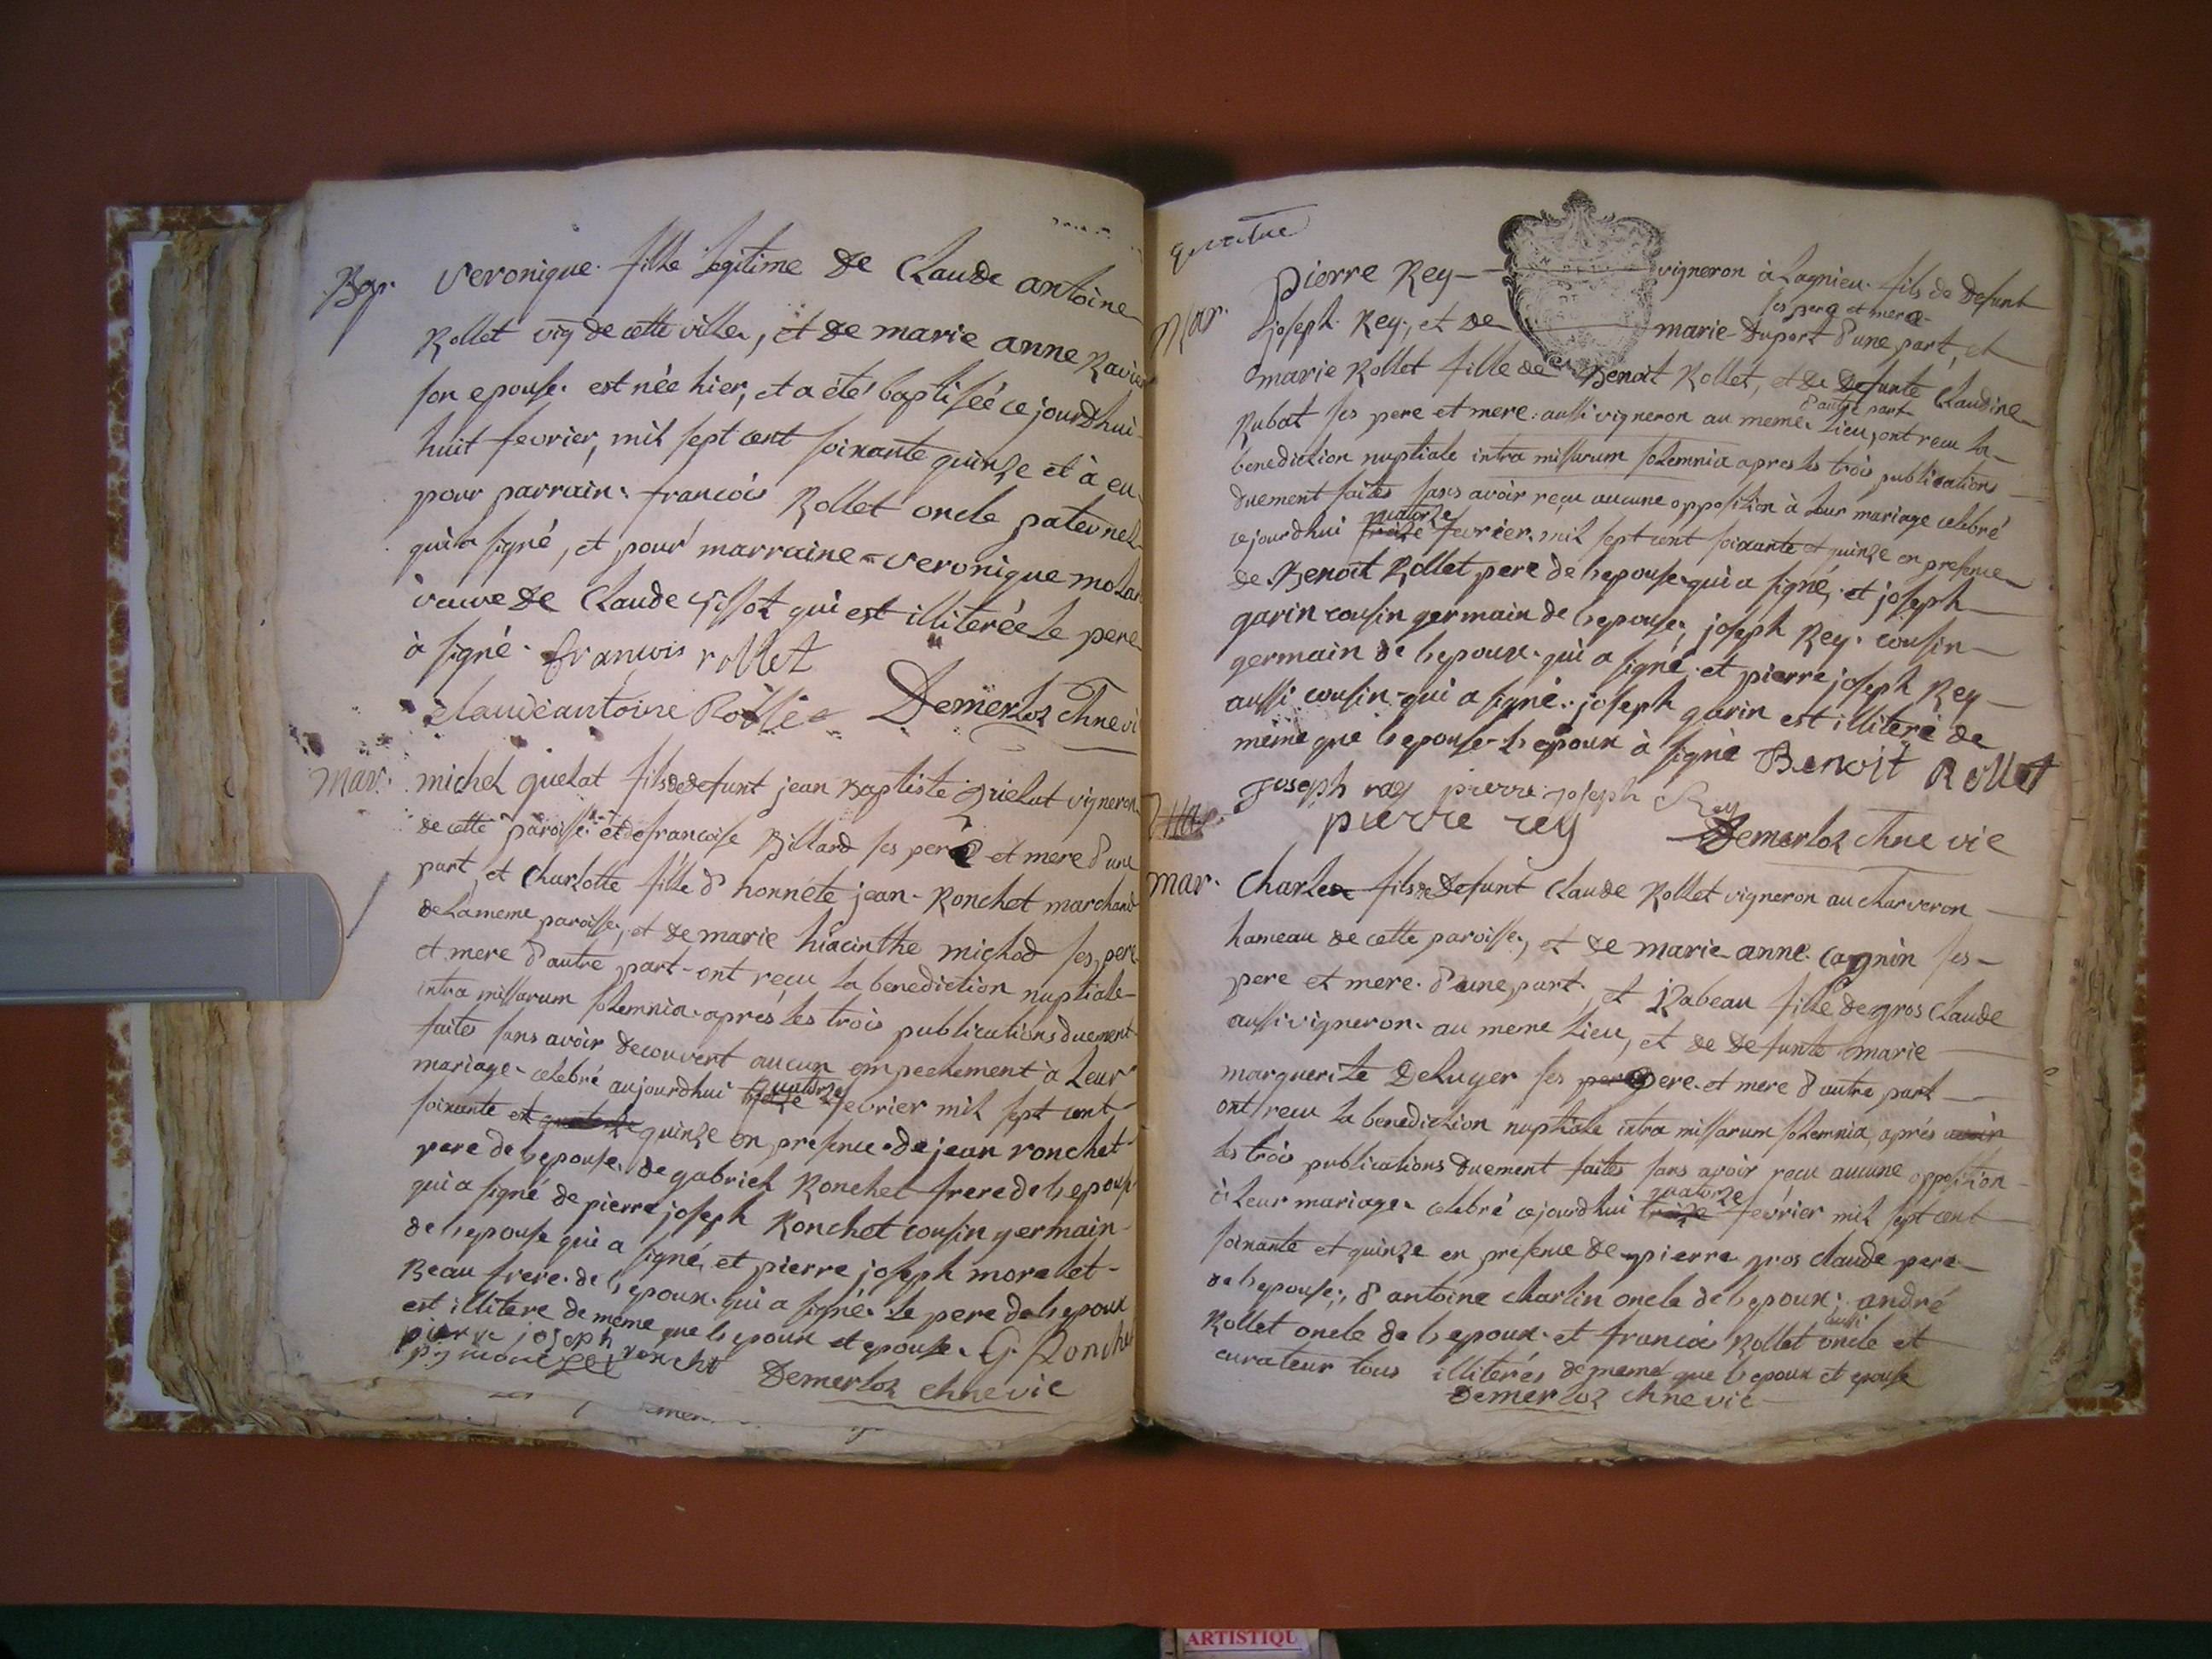 Bap.
Veronique fille legitime de Claude antoine
Rollet vig de cette ville, et de marie anne Ravier
son epouse est née hier, et a été baptisée ce jourdhui
huit fevrier, mil sept cent soixante quinze et à eu
pour parrain francois Rollet oncle paternel
qui a signé, et pour marraine veronique molar
veuve de Claude Sissot qui est illiterée le pere
à signé. francois rollet
claude antoine Rollet Demerloz chne vi
mar. michel guelat fils de defunt jean Baptiste guelat vigneron
de cette paroisse et de francoise Billard ses pere et mere d'une
part, et Charlotte fille d'honnéte jean Ronchet marchand
de la meme paroisse, et de marie hiacinthe michod ses pere
et mere d'autre part ont reçu la benediction nuptiale
intra missarum solemnia aprés les trois publications duement
faites sans avoir decouvert aucun empechement à leur
mariage celebré aujourdhui treize quatorze fevrier mil sept cent
soixante et quatorze quinze en presence de jean ronchet
pere de lepouse de gabriel Ronchet frere de lepouse
qui a signé de pierre joseph Ronchet cousin germain
de lepouse qui a signé, et pierre joseph morelet
Beau frere de lepoux qui a signé. le pere de lepoux
est illitere de meme que lepoux et epouse. G. Ronchet
pierre joseph ronchet
Demerloz chne vic
quatrue
Mar.
pierre Rey vigneron à Lagnieu fils de defunt
joseph Rey, et de marie Duport ses pere et mere d'une part, et
marie Rollet fille de Benoit Rollet, et de defunte Claudine
Rubat ses pere et mere aussi vigneron au meme lieu d'autre part, ont recu la
benediction nuptiale intra missarum solemnia apres les trois publications
duement faites sans avoir reçu aucune opposition à leur mariage celebré
ce jourdhui treize quatorze fevrier mil sept cent soixante et quinze en presence
de Benoit Rollet pere de lepouse qui a signé, et joseph
garin cousin germain de lepouse, joseph Rey cousin
germain de lepoux qui a signé et pierre joseph Rey
aussi cousin qui a signé. joseph garin est illiteré de
meme que lepouse lepoux à signé Benoit Rollet
Joseph ray pierre joseph Rey
pierre rey Demerloz chne vic
mar. Charles fils de defunt Claude Rollet vigneron au charveron
hameau de cette paroisse, et de marie anne cagnin ses
pere et mere d'une part, et izabeau fille de gros Claude
aussi vigneron au meme lieu, et de defunte marie
marguerite Deluger ses pere pere et mere d'autre part
ont recu la benediction nuptiale intra missarum solemnia, aprés avoir
les trois publications duement faites sans avoir recu aucune opposition
à leur mariage celebré ce jourdhui treize quatorze fevrier mil sept cent
soixante et quinze en presence de pierre gros claude pere
de lepouse, d'antoine charlin oncle de lepoux, andré
Rollet oncle de lepoux et francois Rollet aussi oncle et
curateur tous illiterés de meme que lepoux et epouse
Demerloz chne vic
ARTISTIQU